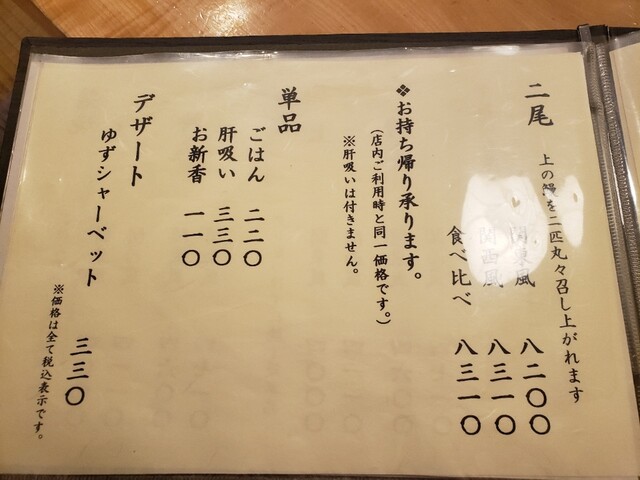 二尾
上の鰻を二匹丸々召し上がれます
関東風 八二〇〇
関西風 八三一〇
食べ比べ 八三一〇
❖お持ち帰り承ります。
(店内ご利用時と同一価格です。)
※肝吸いは付きません。
単品
ごはん 二二〇
肝吸い 三三〇
お新香 一一〇
デザート
ゆずシャーベット 三三〇
※価格は全て税込表示です。